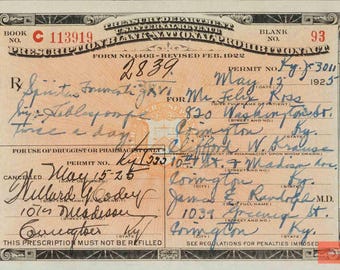 TREASURY DEPARTMENT
U.S. INTERNAL REVENUE
BOOK No. C 113919 BLANK No. 93
PRESCRIPTION BLANK NATIONAL PROHIBITION ACT
FORM No. 1403-REVISED FEB. 1922
2839. PERMIT No. Ky-J-3011
May 15 1925
R Spiritus Frumenti
FOR Mr Felix Ross
820 Washington St.
Sig: Tablespoon
twice a day
Covington Ky.
FOR USE OF DRUGGIST OR PHARMACIST
Clifford W. Krause
PERMIT No. Ky
10th & Madison Ave
CANCELLED May 15-25
Covington Ky.
Willard G. Cooley
James Randolph M.D.
10th Madison
1039 Greenup St.
Covington Ky
Covington Ky.
THIS PRESCRIPTION MUST NOT BE REFILLED SEE REGULATIONS FOR PENALTIES IMPOSED